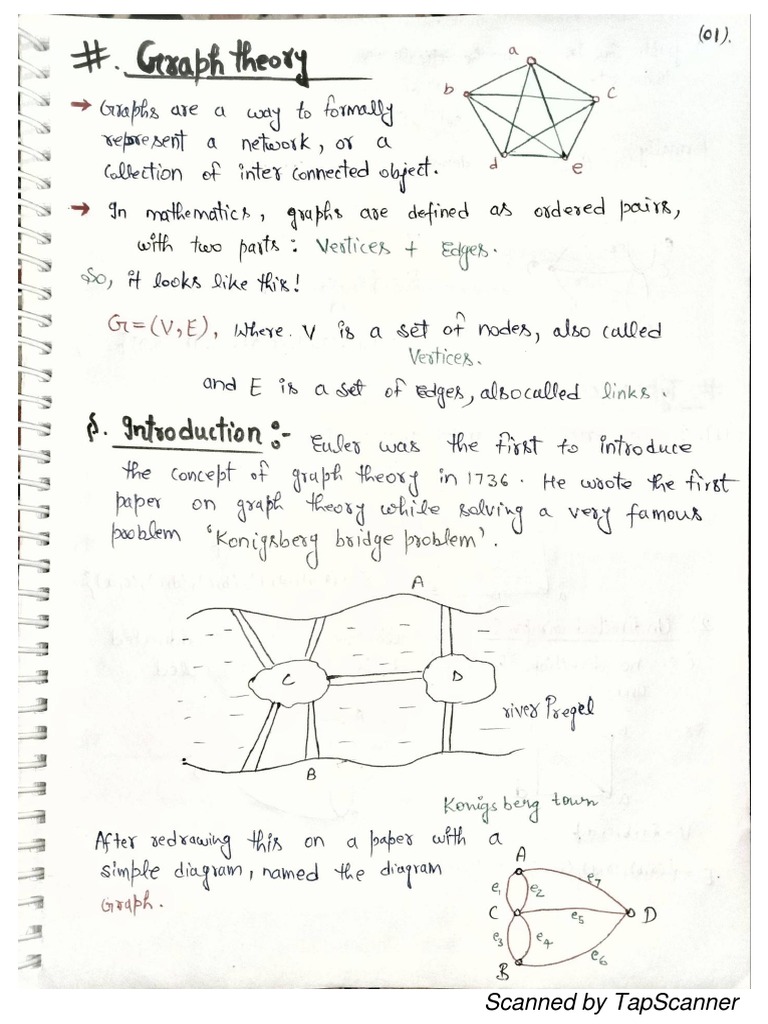 (01).
#. Graph theory
a
b
c
d
e
→ Graphs are a way to formally
represent a network, or a
Collection of inter connected object.
→ In mathematics, graphs are defined as ordered pairs,
with two parts: Vertices + Edges.
So, it looks like this!
G=(V,E), Where V is a set of nodes, also called
Vertices.
and E is a set of Edges, also called links.
§. Introduction :- Euler was the first to introduce
the concept of graph theory in 1736. He wrote the first
paper on graph theory while solving a very famous
problem 'Konigsberg bridge problem'.
A
C
D
river Pregel
B
Konigsberg town
After redrawing this on a paper with a
simple diagram, named the diagram
Graph.
A
e7
e1 e2
C
e5
D
e3 e4
e6
B
Scanned by TapScanner